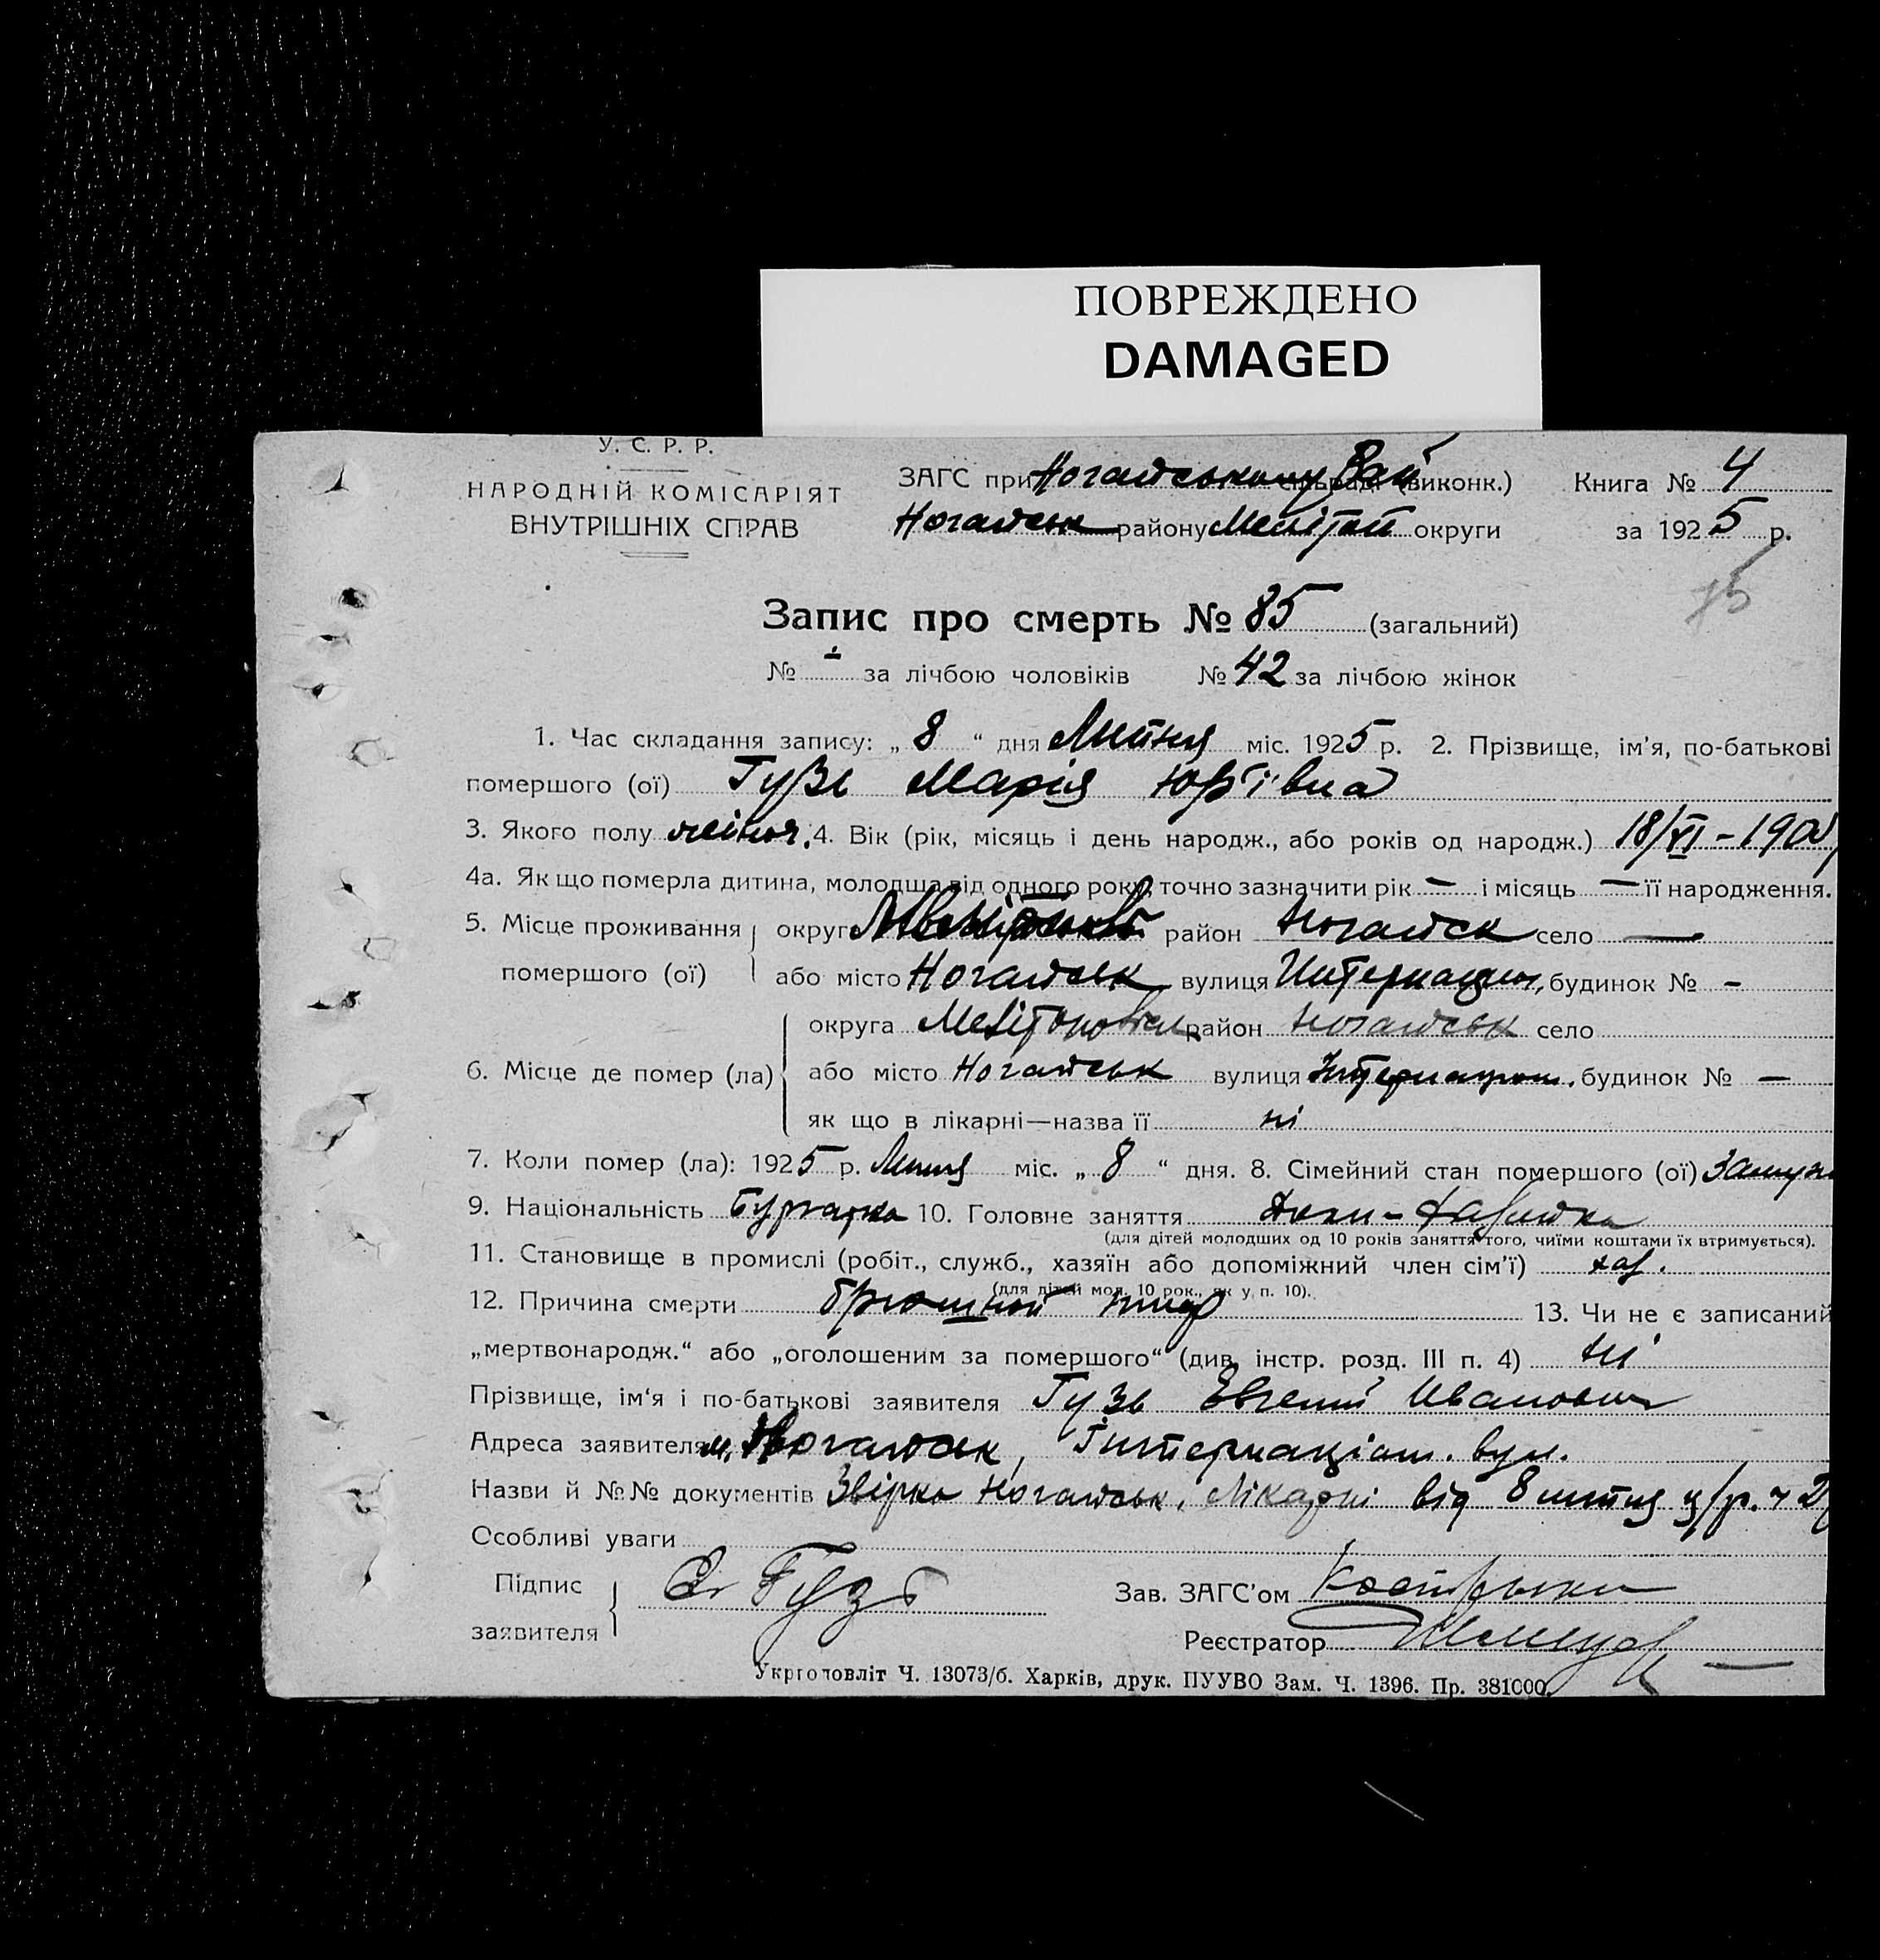 ПОВРЕЖДЕНО
DAMAGED
У. С. Р. Р.
НАРОДНІЙ КОМІСАРІЯТ
ВНУТРІШНІХ СПРАВ
ЗАГС при Ногайському Рай (виконк.)
Ногайськ району Меліт округи
Книга № 4
за 1925 р.
Запис про смерть № 85 (загальний)
№ - за лічбою чоловіків № 42 за лічбою жінок
1. Час складання запису: „ 8 “ дня Липня міс. 1925 р. 2. Прізвище, ім'я, по-батькові
помершого (ої) Гузь Марія Юр'ївна
3. Якого полу жіноч. 4. Вік (рік, місяць і день народж., або років од народж.) 18/VI – 190
4а. Як що померла дитина, молодша від одного року, точно зазначити рік – і місяць – її народження.
5. Місце проживання помершого (ої)
округа район Ногайськ село —
або місто Ногайськ вулиця Интернацион, будинок № -
6. Місце де помер (ла)
округа Мелітопольськ район Ногайськ село
або місто Ногайськ вулиця Интернацион. будинок № —
як що в лікарні—назва її ні
7. Коли помер (ла): 1925 р. Липня міс. „ 8 “ дня. 8. Сімейний стан помершого (ої) Замужн
9. Національність 10. Головне заняття Дом-хазяйка
(для дітей молодших од 10 років заняття того, чиїми коштами їх втримується).
11. Становище в промислі (робіт., служб., хазяїн або допоміжний член сім'ї) хаз.
(для дітей мол. 10 рок., як у п. 10).
12. Причина смерти брюшной тиф 13. Чи не є записаний
„мертвонародж.“ або „оголошеним за помершого“ (див. інстр. розд. III п. 4) ні
Прізвище, ім'я і по-батькові заявителя Гузь Евгений Иванович
Адреса заявителя м. Ногайськ, Інтернаціон. вул.
Назви й №№ документів Ногайськ. Лікарні від 8 липня ц/р.
Особливі уваги
Підпис заявителя Гузь
Зав. ЗАГС'ом
Реєстратор
Укрголовліт Ч. 13073/б. Харків, друк. ПУУВО Зам. Ч. 1396. Пр. 381000.